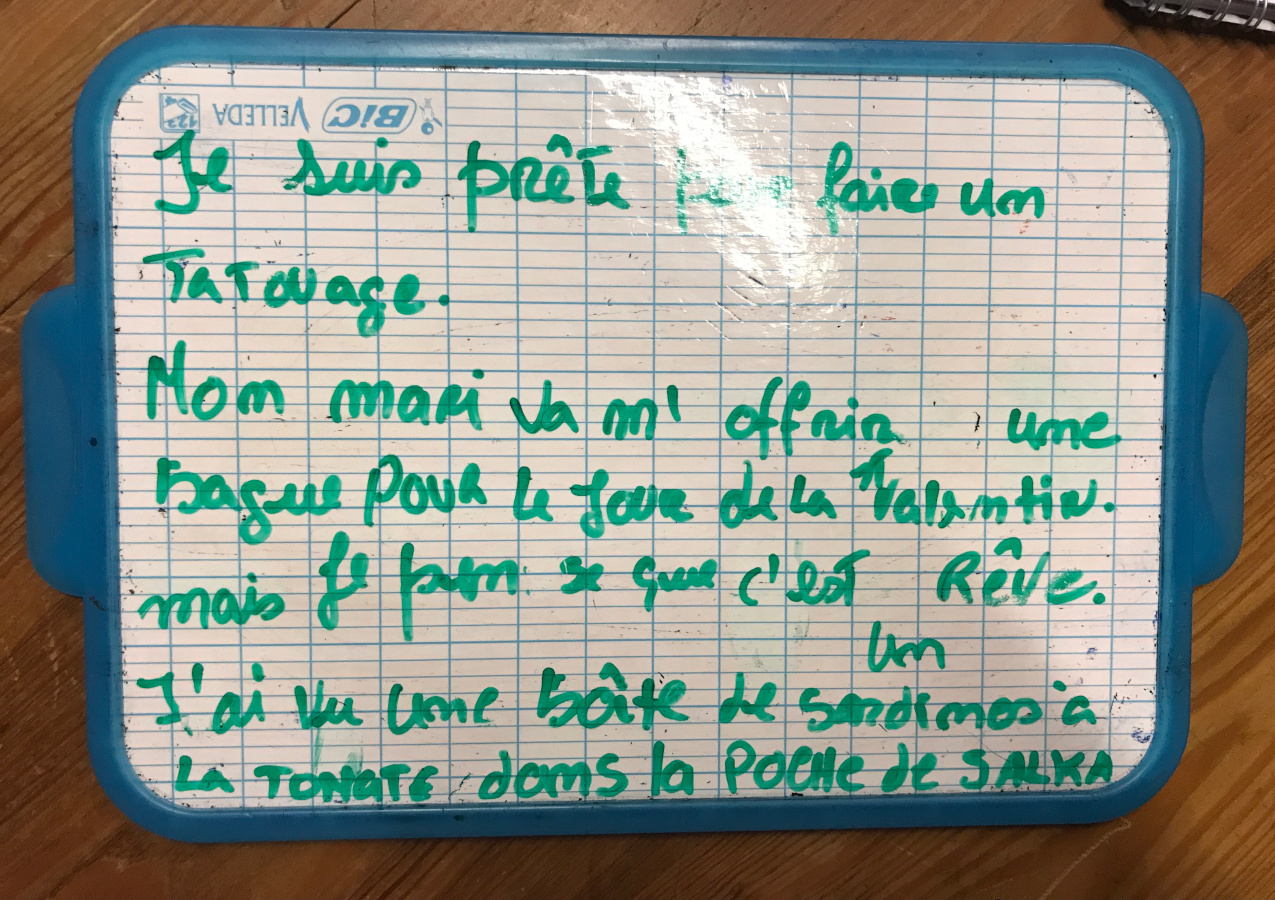 VELLEDA BIC
Je suis prête pour faire un
Tatouage.
Mon mari va m'offrir une
bague pour le jour de la St Valentin.
mais je pense que c'est Rêve.
un
J'ai vu une boîte de sardines à
la TOMATE dans la POCHE de SALKA